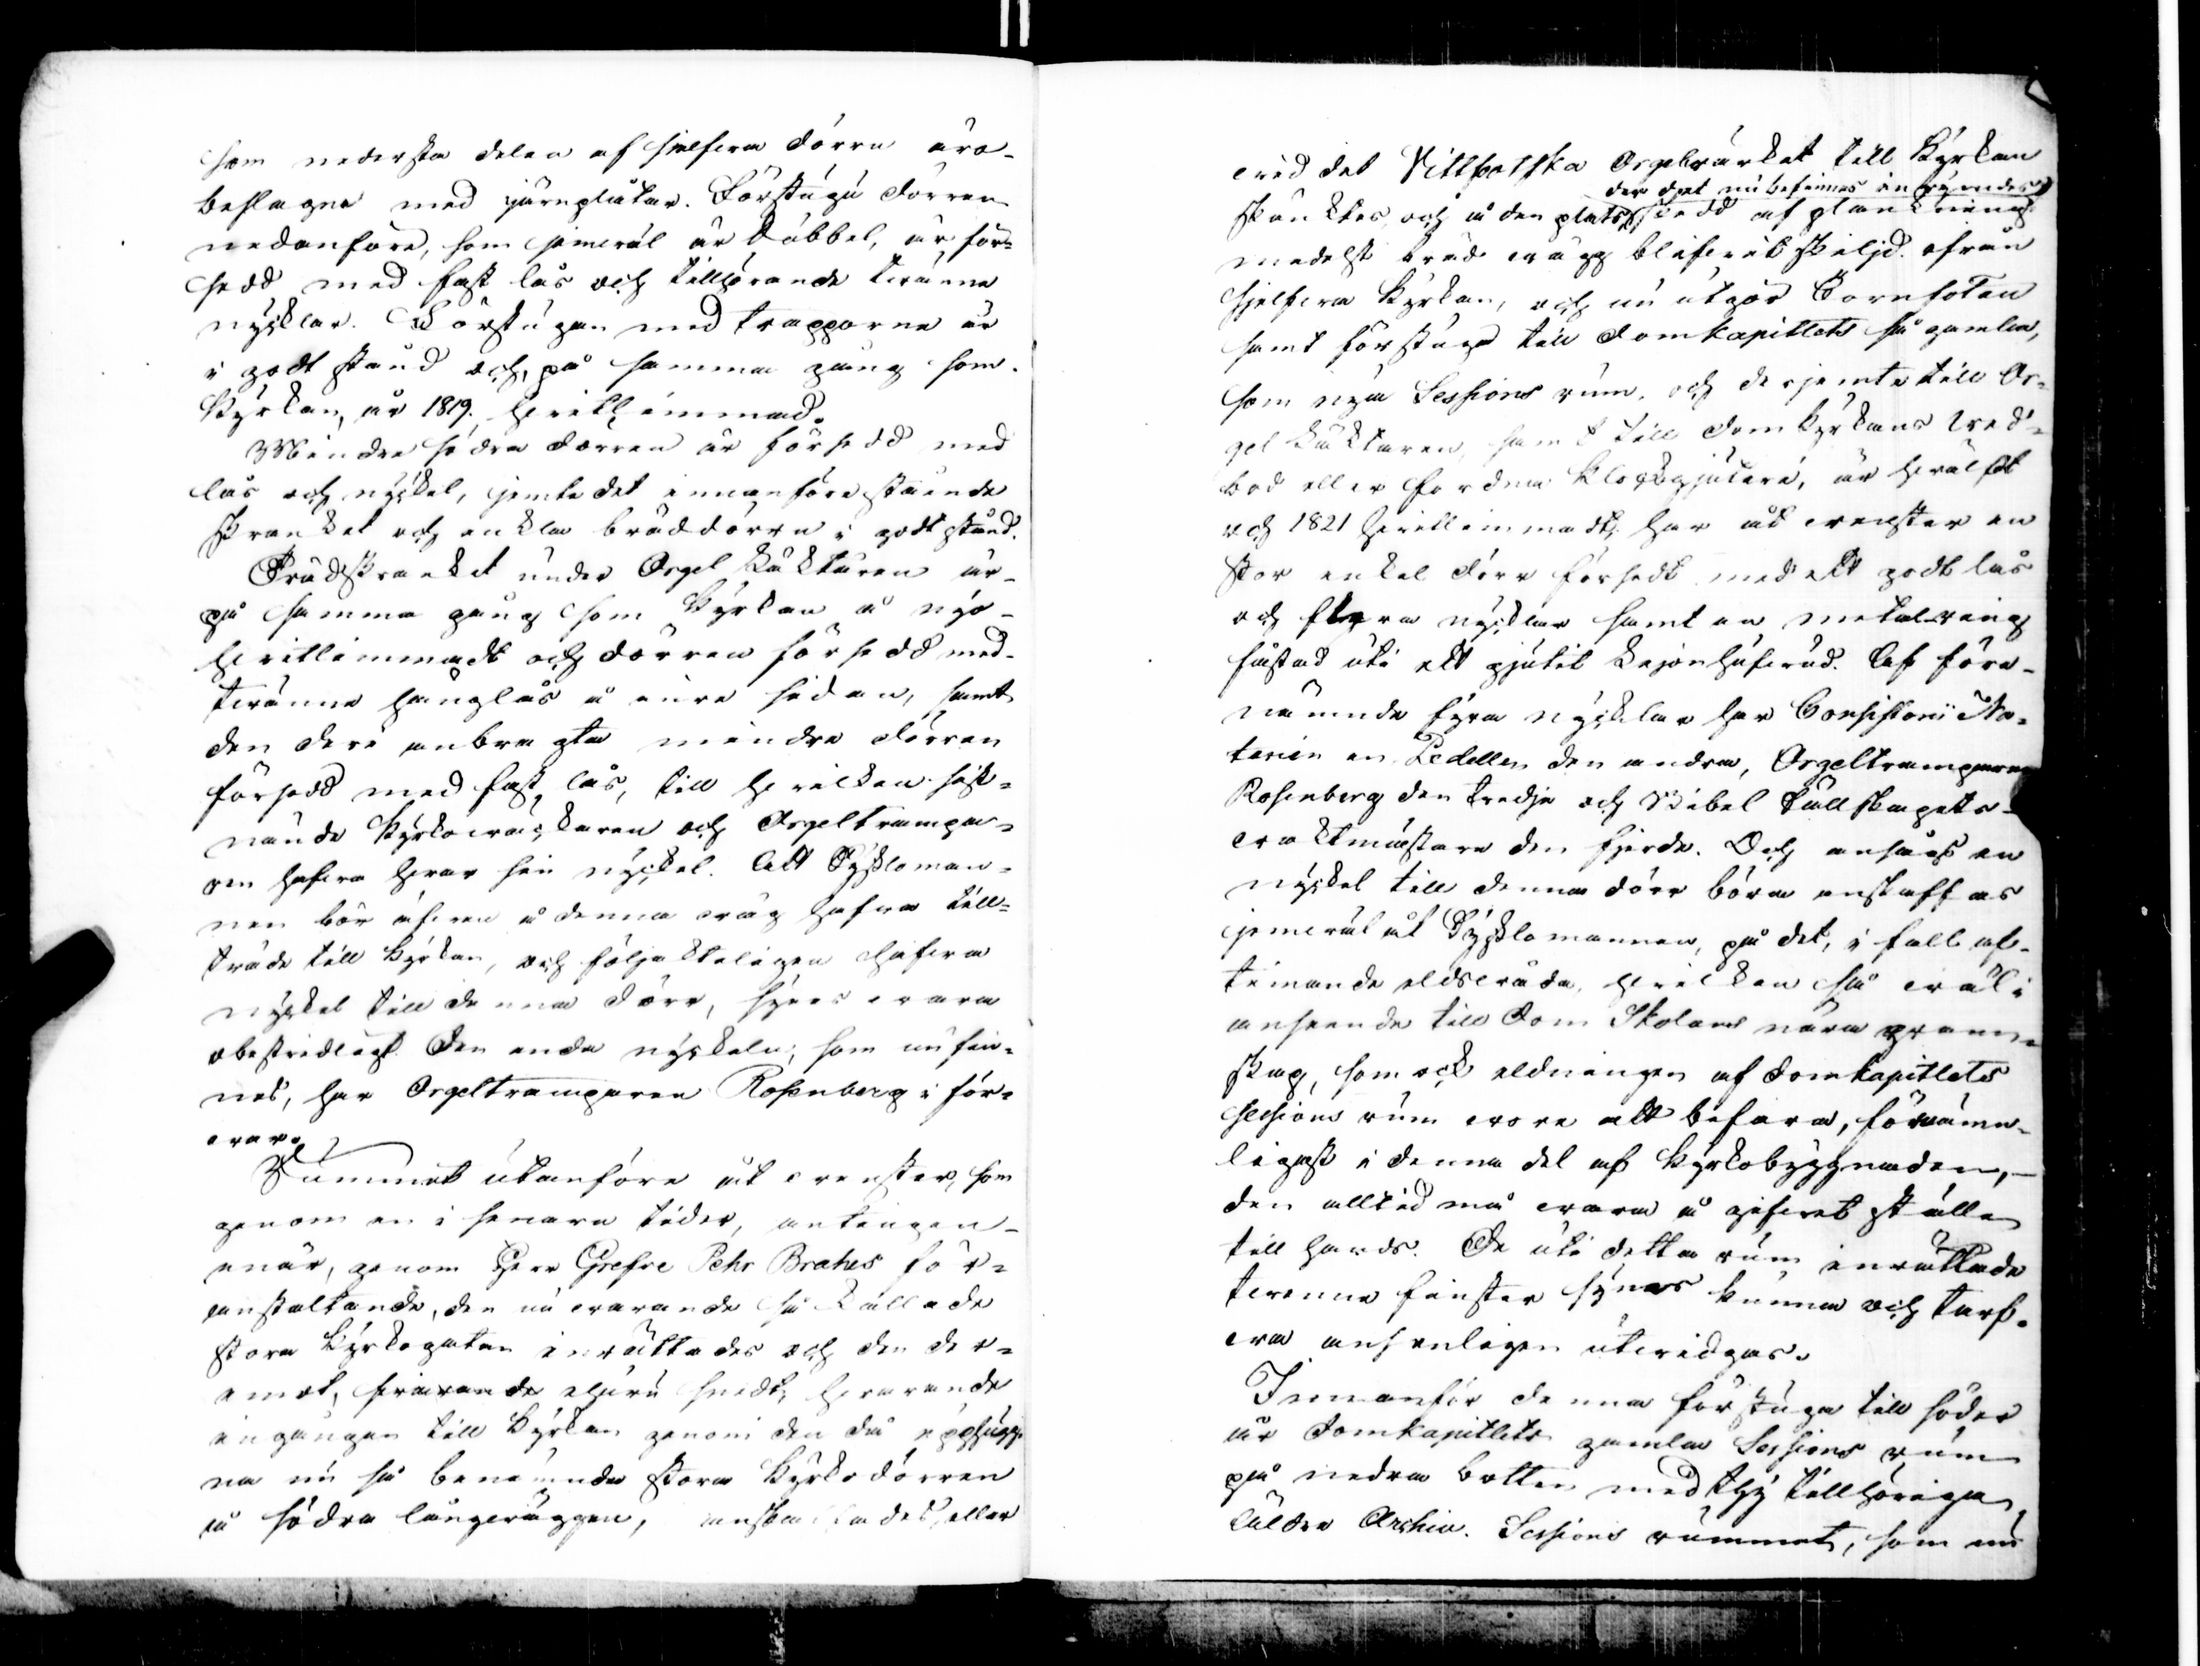 som nedersta delen af sjelfva dörrn äro
beslagne med järnplåtar. Förstugu dörren
nedanföre, som jemväl är dubbel, är för-
sedd med fast lås och tillhörande tvänne
nycklar. Förstugan med trapporne är
i godt stånd och, på samma gång som
Kyrkan, år 1819, hvitlimmad.
Mindre södra dörren är försedd med
lås och nyckel, jemte det innanföre stående
skranket och enkla bräddörrn i godt stånd.
Trädskranket under Orgel Läktaren är
på samma gång som Kyrkan å nyo
hvitlimmadt och dörren försedd med
tvänne hänglås å inre sidan, samt
den deri anbragta mindre dörren
försedd med fast lås, till hvilken sist-
nämde Kyrkoväcktaren och Orgeltrampa-
ren hafva hvar sin nyckel. Att Sysloman-
nen bör äfven å denna väg hafva till-
träde till Kyrkan, och följakteligen hafva
nyckel till denna dörr, synes vara
obestridligt. Den enda nyckeln, som nu fin-
nes, har Orgeltramparen Rosenberg i för-
var.
Rummet utanföre åt venster, som
genom en i senare tider, antingen
enär, genom Herr Grefve Pehr Brahes för-
anstaltande, den nu varande så kallade
stora Kyrkogatan inrättades och den der-
emot, svarande ehuru snedt, hvarande
ingången till Kyrkan genom den då upphugg-
na nu så benämnda stora Kyrkodörren
på södra långväggen, anstaltades eller
vid det Vittbottska Orgelvärket till Kyrkan
der det nu befinnes inrymdes
skänktes, och å den plats skedd afplankning
medelst bräde vägg blifvit skiljd ifrån
sjelfva Kyrkan, och nu utgör Tornfoten
samt förstuga till Domkapitlets så gamla,
som nya Sessions rum, och derjemte till Or-
gel Läktaren, samt till Domkyrkans Ved-
bod eller fordna Klockgjuteri, är hvälft
och 1821 hvitlimmadt, har åt venster en
stor enkel dörr försedt med ett godt lås
och flera nycklar samt en metalring
fästad uti ett gjutit Lejonhufvud. Af före-
nämnde fyra nycklar har Consistorii No-
tarien en, Pedellen den andra, Orgeltramparen
Rosenberg den tredje och Bibel Sällskapets
vaktmästare den fjerde. Och ansågs en
nyckel till denna dörr böra anskaffas
jemväl åt Sysslomannen, på det, i fall af
timande eldsvåda, hvilken så väl i
anseende till Dom Skolans nära gran-
skap, som ock eldningen af Domkapitlets
sessions rum vore att befara, förnäm-
ligast i denna del af Kyrkobyggnaden,
den alltid må vara å gifvet ställe
till hands. De uti detta rum inrättade
tvenne fenster synes kunna och tarf-
va ansenligen utvidgas.
Innanför denna förstuga till höger
är Domkapitlets gamla Sessions rum
på nedra botten med thy tillhöriga
äldre Archiv. Sessions rummet, som nu